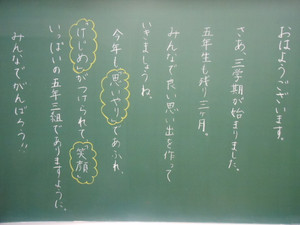 おはようございます。
さあ、三学期が始まりました。
五年生も残り三ヶ月。
みんなで良い思い出を作って
いきましょうね。
今年も思いやりであふれ、
「けじめ」がつけられて「笑顔」
いっぱいの五年三組でありますように。
みんなでがんばろう!!